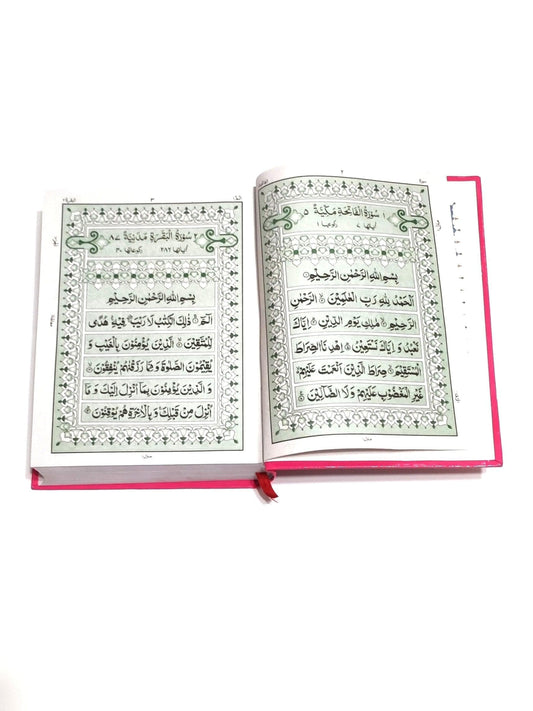 ٢
١ سُوْرَةُ الْفَاتِحَةِ مَكِّيَّةٌ ٥
اٰيَاتُهَا ٧ رُكُوْعُهَا ١
بِسْمِ اللّٰهِ الرَّحْمٰنِ الرَّحِيْمِ
اَلْحَمْدُ لِلّٰهِ رَبِّ الْعٰلَمِيْنَ الرَّحْمٰنِ
الرَّحِيْمِ مٰلِكِ يَوْمِ الدِّيْنِ اِيَّاكَ
نَعْبُدُ وَ اِيَّاكَ نَسْتَعِيْنُ اِهْدِ نَا الصِّرَاطَ
الْمُسْتَقِيْمَ صِرَاطَ الَّذِيْنَ اَنْعَمْتَ عَلَيْهِمْ
غَيْرِ الْمَغْضُوْبِ عَلَيْهِمْ وَلَا الضَّآلِّيْنَ
٣
٢ سُوْرَةُ الْبَقَرَةِ مَدَنِيَّةٌ ٨٧
اٰيَاتُهَا ٢٨٦ رُكُوْعَاتُهَا ٤٠
بِسْمِ اللّٰهِ الرَّحْمٰنِ الرَّحِيْمِ
الٓمّٓ ذٰلِكَ الْكِتٰبُ لَا رَيْبَ فِيْهِ هُدًى
لِّلْمُتَّقِيْنَ الَّذِيْنَ يُؤْمِنُوْنَ بِالْغَيْبِ وَ
يُقِيْمُوْنَ الصَّلٰوةَ وَ مِمَّا رَزَقْنٰهُمْ يُنْفِقُوْنَ
وَ الَّذِيْنَ يُؤْمِنُوْنَ بِمَآ اُنْزِلَ اِلَيْكَ وَ مَآ
اُنْزِلَ مِنْ قَبْلِكَ وَ بِالْاٰخِرَةِ هُمْ يُوْقِنُوْنَ